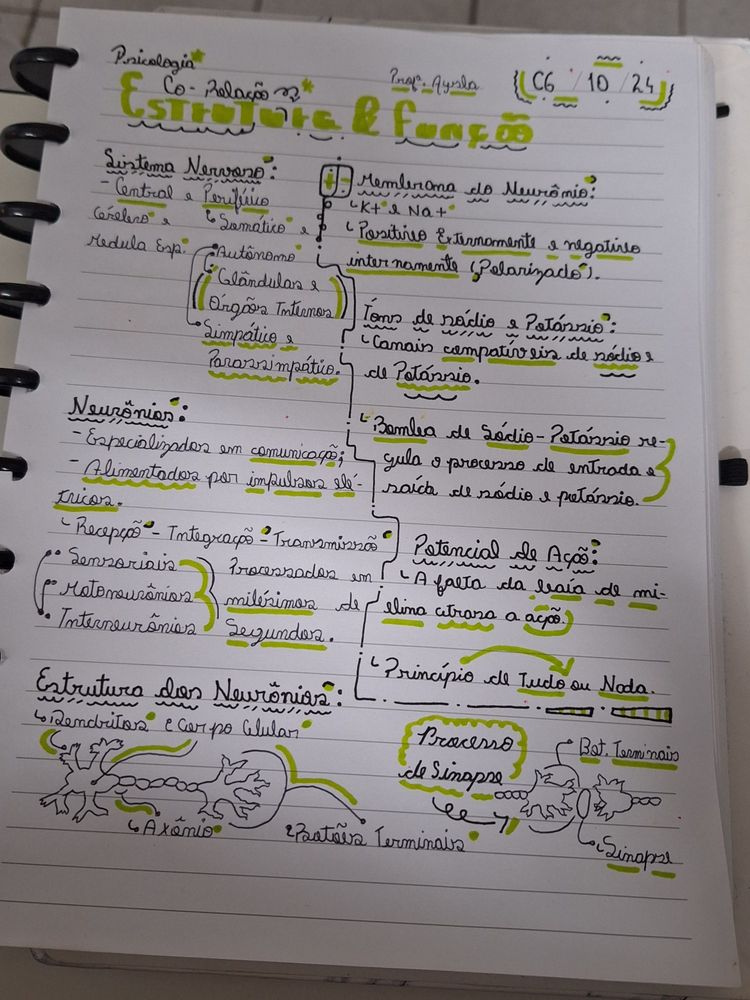 Psicologia
Co-Relação
Profª. Aysla
06/10/24
Estrutura & função
Sistema Nervoso:
- Central e Periféico
Cérebro e
medula Esp.
Somático e
Autônomo
Glândulas e
Orgãos Internos
Simpático e
Parassimpático.
Neurônios:
- Especializados em comunicação;
- Alimentados por impulsos elé-
tricos.
Recepção - Integração - Transmissão
Sensoriais
Motoneurônios
Interneurônios
Processados em
milésimos de
Segundos.
Estrutura dos Neurônios:
Dendritos e Corpo Celular
Axônio
Botões Terminais
+ -
Membrana do Neurônio:
K+ e Na+
Positivo Externamente e negativo
internamente (Polarizado).
Íons de sódio e Potássio:
Canais compatíveis de sódio e
de Potássio.
Bomba de Sódio-Potássio re-
gula o processo de entrada e
saída de sódio e potássio.
Potencial de Ação:
A falta da baía de mi-
elina atrasa a ação.
Princípio de Tudo ou Nada.
Processo
de Sinapse
Bot. Terminais
Sinapse